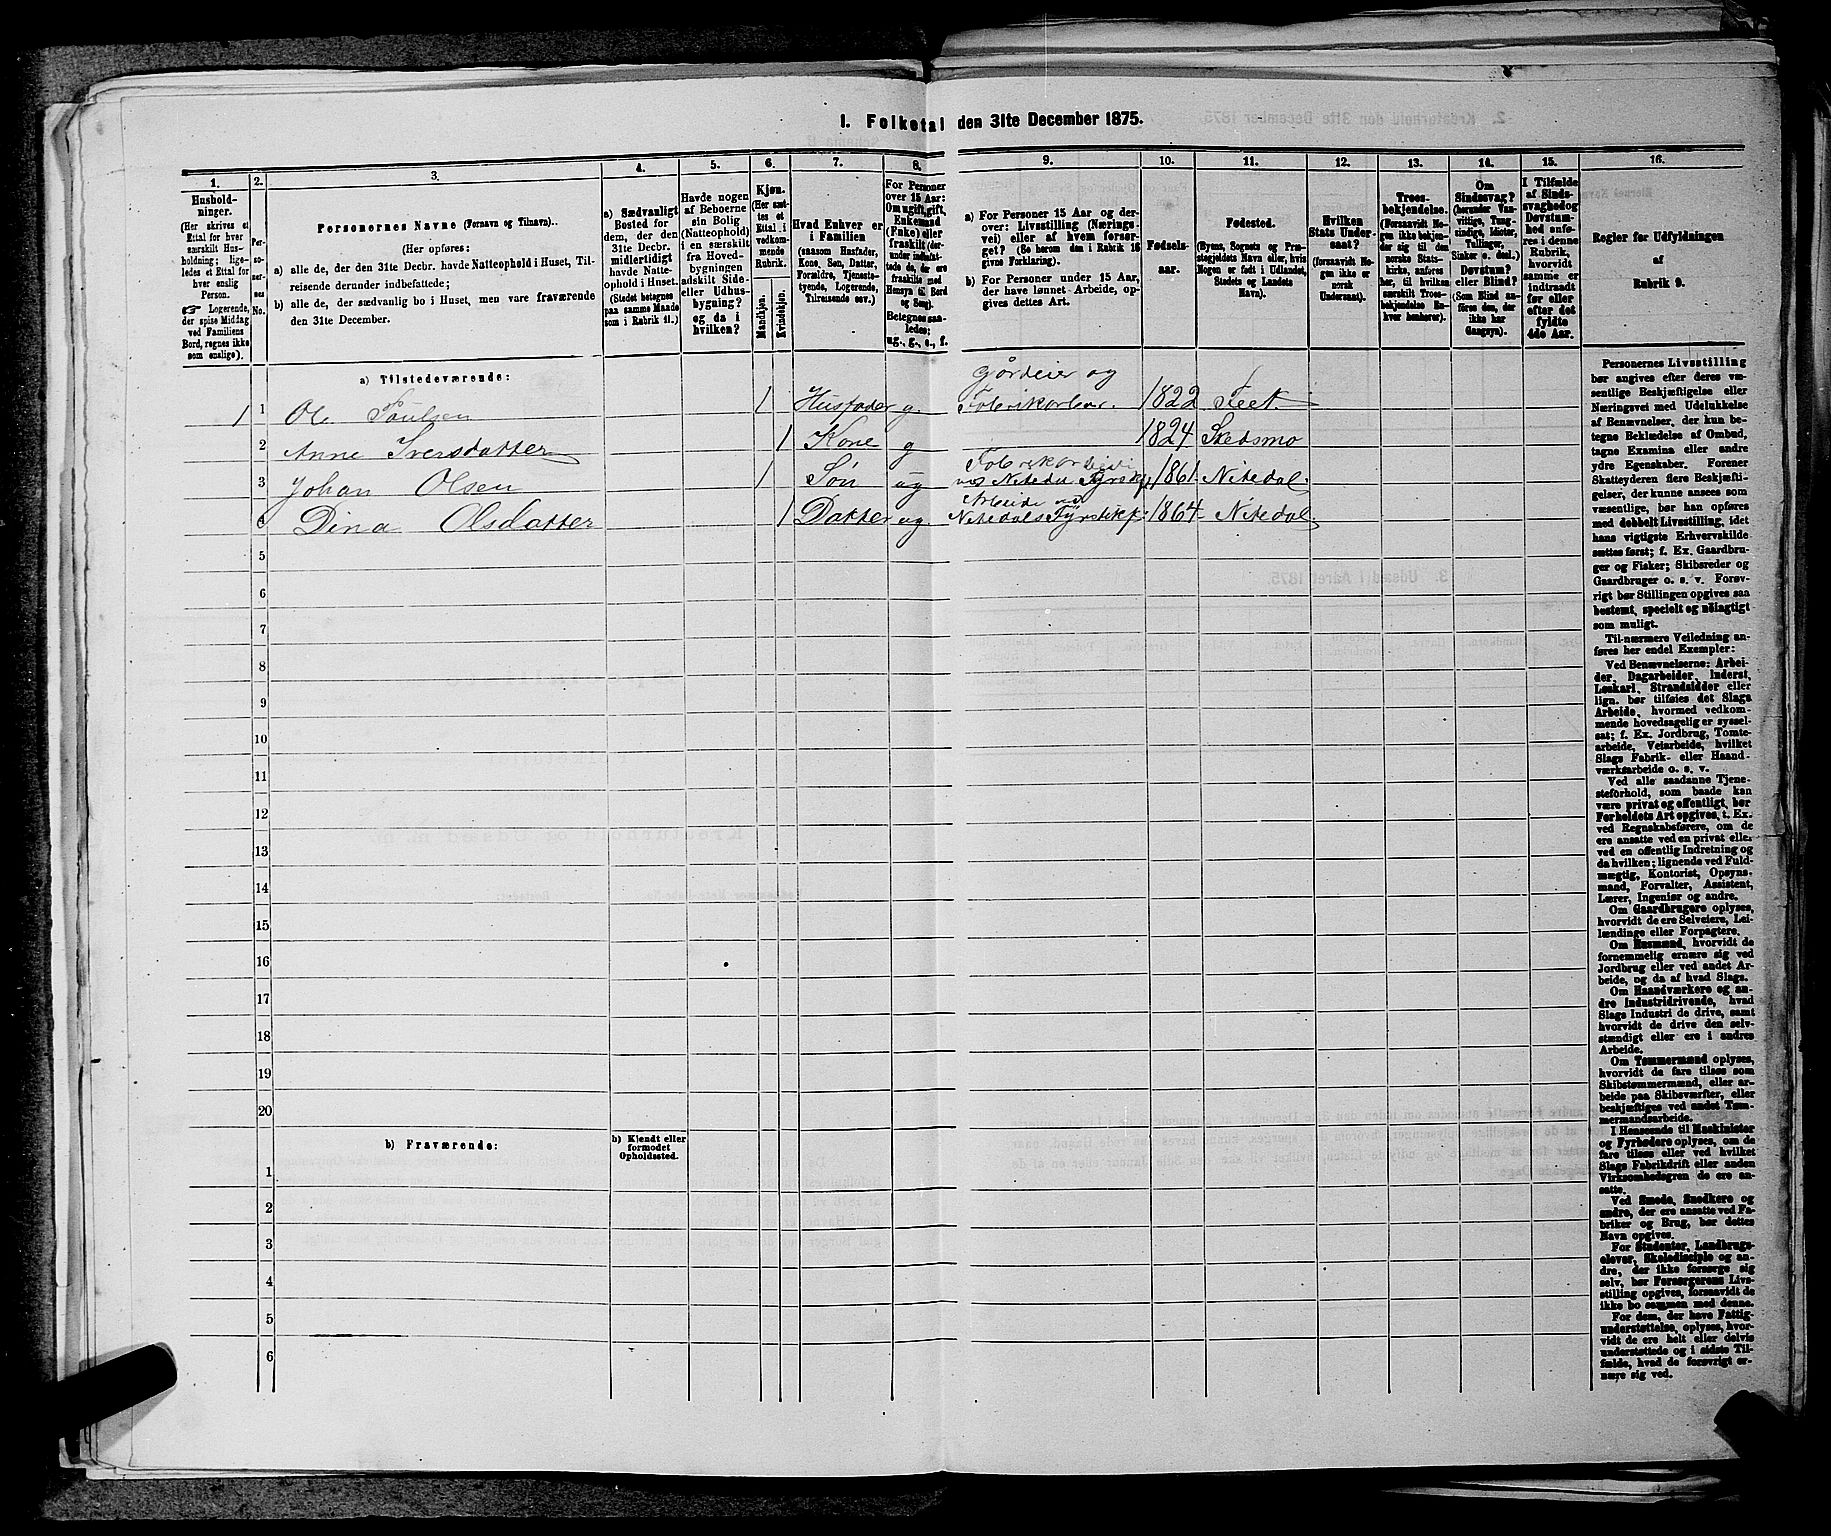 I. Folketal den 31te December 1875.
1.
2.
3.
4.
5.
6.
7.
8.
9.
10.
11.
12.
13.
14.
15.
16.
Husholdninger.
(Her skrives et
Ettal for hver
særskilt Husholdning; ligeledes
et Ettal for
hver enslig
Person.
☞ Logerende,
der spise Middag
ved Familiens
Bord, regnes ikke
som enslige).
Personernes No.
Personernes Navne (Fornavn og Tilnavn).
(Her opføres:
a) alle de, der den 31te Decbr. havde Natteophold i Huset, Tilreisende derunder indbefattede;
b) alle de, der sædvanlig bo i Huset, men vare fraværende
den 31te December.
a) Sædvanligt
Bosted for
dem, der den
31te Decbr.
midlertidigt
havde Natteophold i Huset.
(Stedet betegnes
paa samme Maade
som i Rubrik 11.)
Havde nogen
af Beboerne
ein Bolig
(Natteophold)
i en særskilt
fra Hovedbygningen
adskilt Side-
eller Udhusbygning?
og da i
hvilken?
Kjøn.
(Her sættes et
Ettal i
vedkommende
Rubrik.
Mandkjøn.
Kvindekjøn.
Hvad Enhver er
i Familien
(saasom Husfader,
Kone, Søn, Datter,
Forældre, Tjenestetyende, Logerende,
Tilreisende osv.)
For Personer
over 15 Aar:
Om ugift, gift,
Enkemand
(Enke) eller
fraskilt (derunder indbefattede de, der ere
fraskilte med
Hensyn til Bord
og Seng).
Betegnes saaledes:
ug., g., e., f.
a) For Personer 15 Aar og derover: Livsstilling (Næringsvei) eller af hvem forsørget? (Se herom den i Rubrik 16
givne Forklaring).
b) Personer under 15 Aar,
der have lønnet Arbeide, opgives dettes Art.
Fødselsaar.
Fødested.
(Byens, Sognets og Præstegjeldets Navn eller, hvis
Nogen er født i Udlandet,
Stedets og Landets
Navn).
Hvilken
Stats Undersaat?
(forsaavidt Nogen ikke er
norsk
Undersaat).
Troesbekjendelse.
(Forsaavidt Nogen ikke bekjender sig til den
norske Statskirke, anføres
her, til hvilken
særskilt Troesbekjendelse Enhver henhører).
Om
Sindssvag?
(herunder Vanvittige, Tungsindige, Idioter,
Tullinger,
Sinker o. desl.)
Døvstum?
eller Blind?
(Som Blind anføres den, der
ikke har
Gangsyn).
I Tilfælde
af Sindssvaghed og
Døvstumhed anføres i denne
Rubrik,
hvorvidt
samme er
indtraadt
før eller
efter det
fyldte
4de Aar.
Regler for Udfyldningen
af
Rubrik 9.
a) Tilstedeværende:
Gårdeier og
1 1 Ole Poulsen 1 Husfader g. Fabrikarbeider. 1822 Feet.
2 Anne Iversdatter 1 Kone g 1824 Skedsmo
Fabrikarbeider
3 Johan Olsen 1 Søn ug ved Nitedals Fyrst. 1861 Nitedal.
Arbeide ved
4 Dina Olsdatter 1 Datter ug. Nitedals Fyrstikf. 1864 Nitedal.
5
6
7
8
9
10
11
12
13
14
15
16
17
18
19
20
b) Fraværende:
b) Kjendt eller
formodet
Opholdssted.
1
2
3
4
5
6
Personernes Livsstilling
bør angives efter deres væsentlige Beskjæftigelse eller
Næringsvei med Udelukkelse
af Benævnelser, der kun betegne Beklædelse af Ombud,
tagne Examina eller andre
ydre Egenskaber. Forener
Skatteyderen flere Beskjæftigelser, der kunne ansees som
væsentlige, bør han opføres
med dobbelt Livsstilling, idet
hans vigtigste Erhvervskilde
sættes først; f. Ex. Gaardbruger og Fisker; Skibsreder og
Gaardbruger o. s. v. Forøvrigt bør Stillingen opgives saa
bestemt, specielt og nøiagtigt
som muligt.
Til nærmere Veiledning anføres her endel Exempler:
Ved Benævnelserne: Arbeider, Dagarbeider, Inderst,
Løskarl, Strandsidder eller
lign. bør tilføies det Slags
Arbeide, hvormed vedkommende hovedsagelig er sysselsat; f. Ex. Jordbrug, Tomtearbeide, Veiarbeide, hvilket
Slags Fabrik- eller Haandværksarbeide o. s. v.
Ved alle saadanne Tjenesteforhold, som baade kan
være privat og offentligt, bør
Forholdets Art opgives, t. Ex.
ved Regnskabsførere, om de
ere ansatte ved en privat eller
ved en offentlig Indretning og
da hvilken; lignende ved Fuldmægtig, Kontorist, Opsynsmand, Forvalter, Assistent,
Lærer, Ingeniør og andre.
Om Gaardbrugere oplyses,
hvorvidt de ere Selveiere, Leilændinge eller Forpagtere.
Om Husmænd, hvorvidt de
fornemmelig ernære sig ved
Jordbrug eller ved andet Arbeide, og da af hvad Slags.
Om Haandværkere og andre Industridrivende, hvad
Slags Industri de drive, samt
hvorvidt de drive den selvstændigt eller ere i andres
Arbeide.
Om Tømmermænd oplyses,
hvorvidt de fare tilsøs som
Skibstømmermænd, eller arbeide paa Skibsværfter, eller
beskjæftiges ved andet Tømmermandsarbeide.
I Henseende til Maskinister
og Fyrbødere oplyses, om de
fare tilsøs eller ved hvilket
Slags Fabrikdrift eller anden
Virksomhedsgren de ere ansatte.
Ved Smede, Snedkere og
andre, der ere ansatte ved Fabriker og Brug, bør dettes
Navn opgives.
For Studenter, Landbrugselever, Skoledisciple og andre, der ikke forsørge sig
selv, bør Forsørgerens Livsstilling opgives, forsaavidt de
ikke bo sammen med denne.
For dem, der have Fattigunderstøttelse, oplyses, hvorvidt de ere helt eller delvis
understøttede og i sidste Tilfælde, hvad de forøvrigt ernære sig ved.